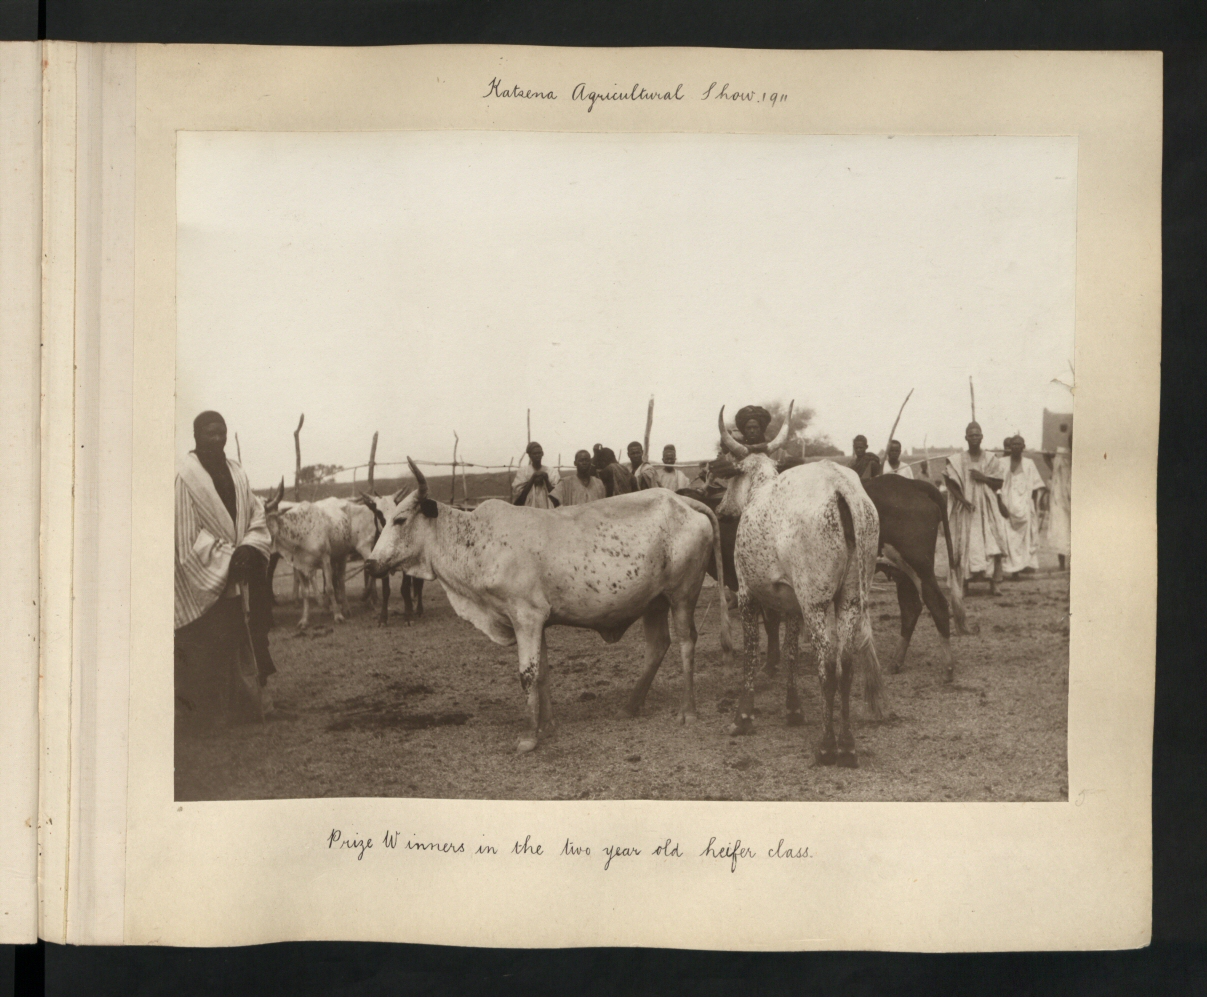 Katsena Agricultural Show. 1911
Prize Winners in the two year old heifer class.